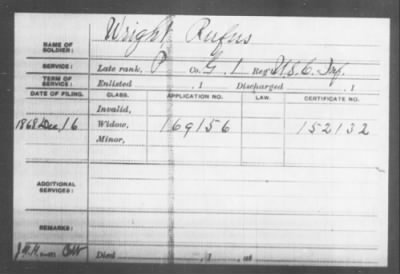 Wright Rufus
NAME OF SOLDIER:
SERVICE: Late rank, P Co. G, 1 Reg't U.S.C. Inf.
TERM OF SERVICE: Enlisted , 1 Discharged , 1
DATE OF FILING. CLASS. APPLICATION NO. LAW. CERTIFICATE NO.
Invalid,
1868 Dec, 16 Widow, 169156 152132
Minor,
ADDITIONAL SERVICES:
REMARKS:
Died , 1